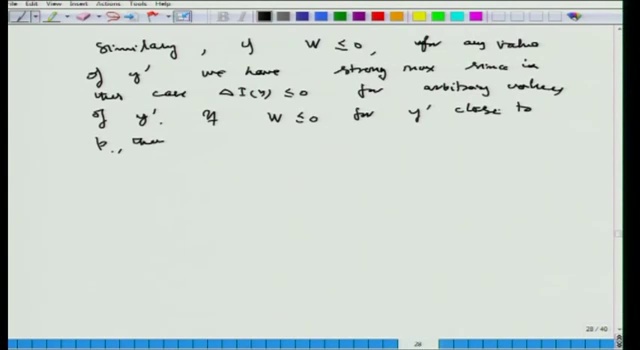 File Edit View Insert Actions Tools Help
Similarly, if W ≤ 0, for any value
of y' we have strong max since in
this case ΔI(y) ≤ 0 for arbitrary values
of y'. If W ≤ 0 for y' close to
p, then
28 / 40
28